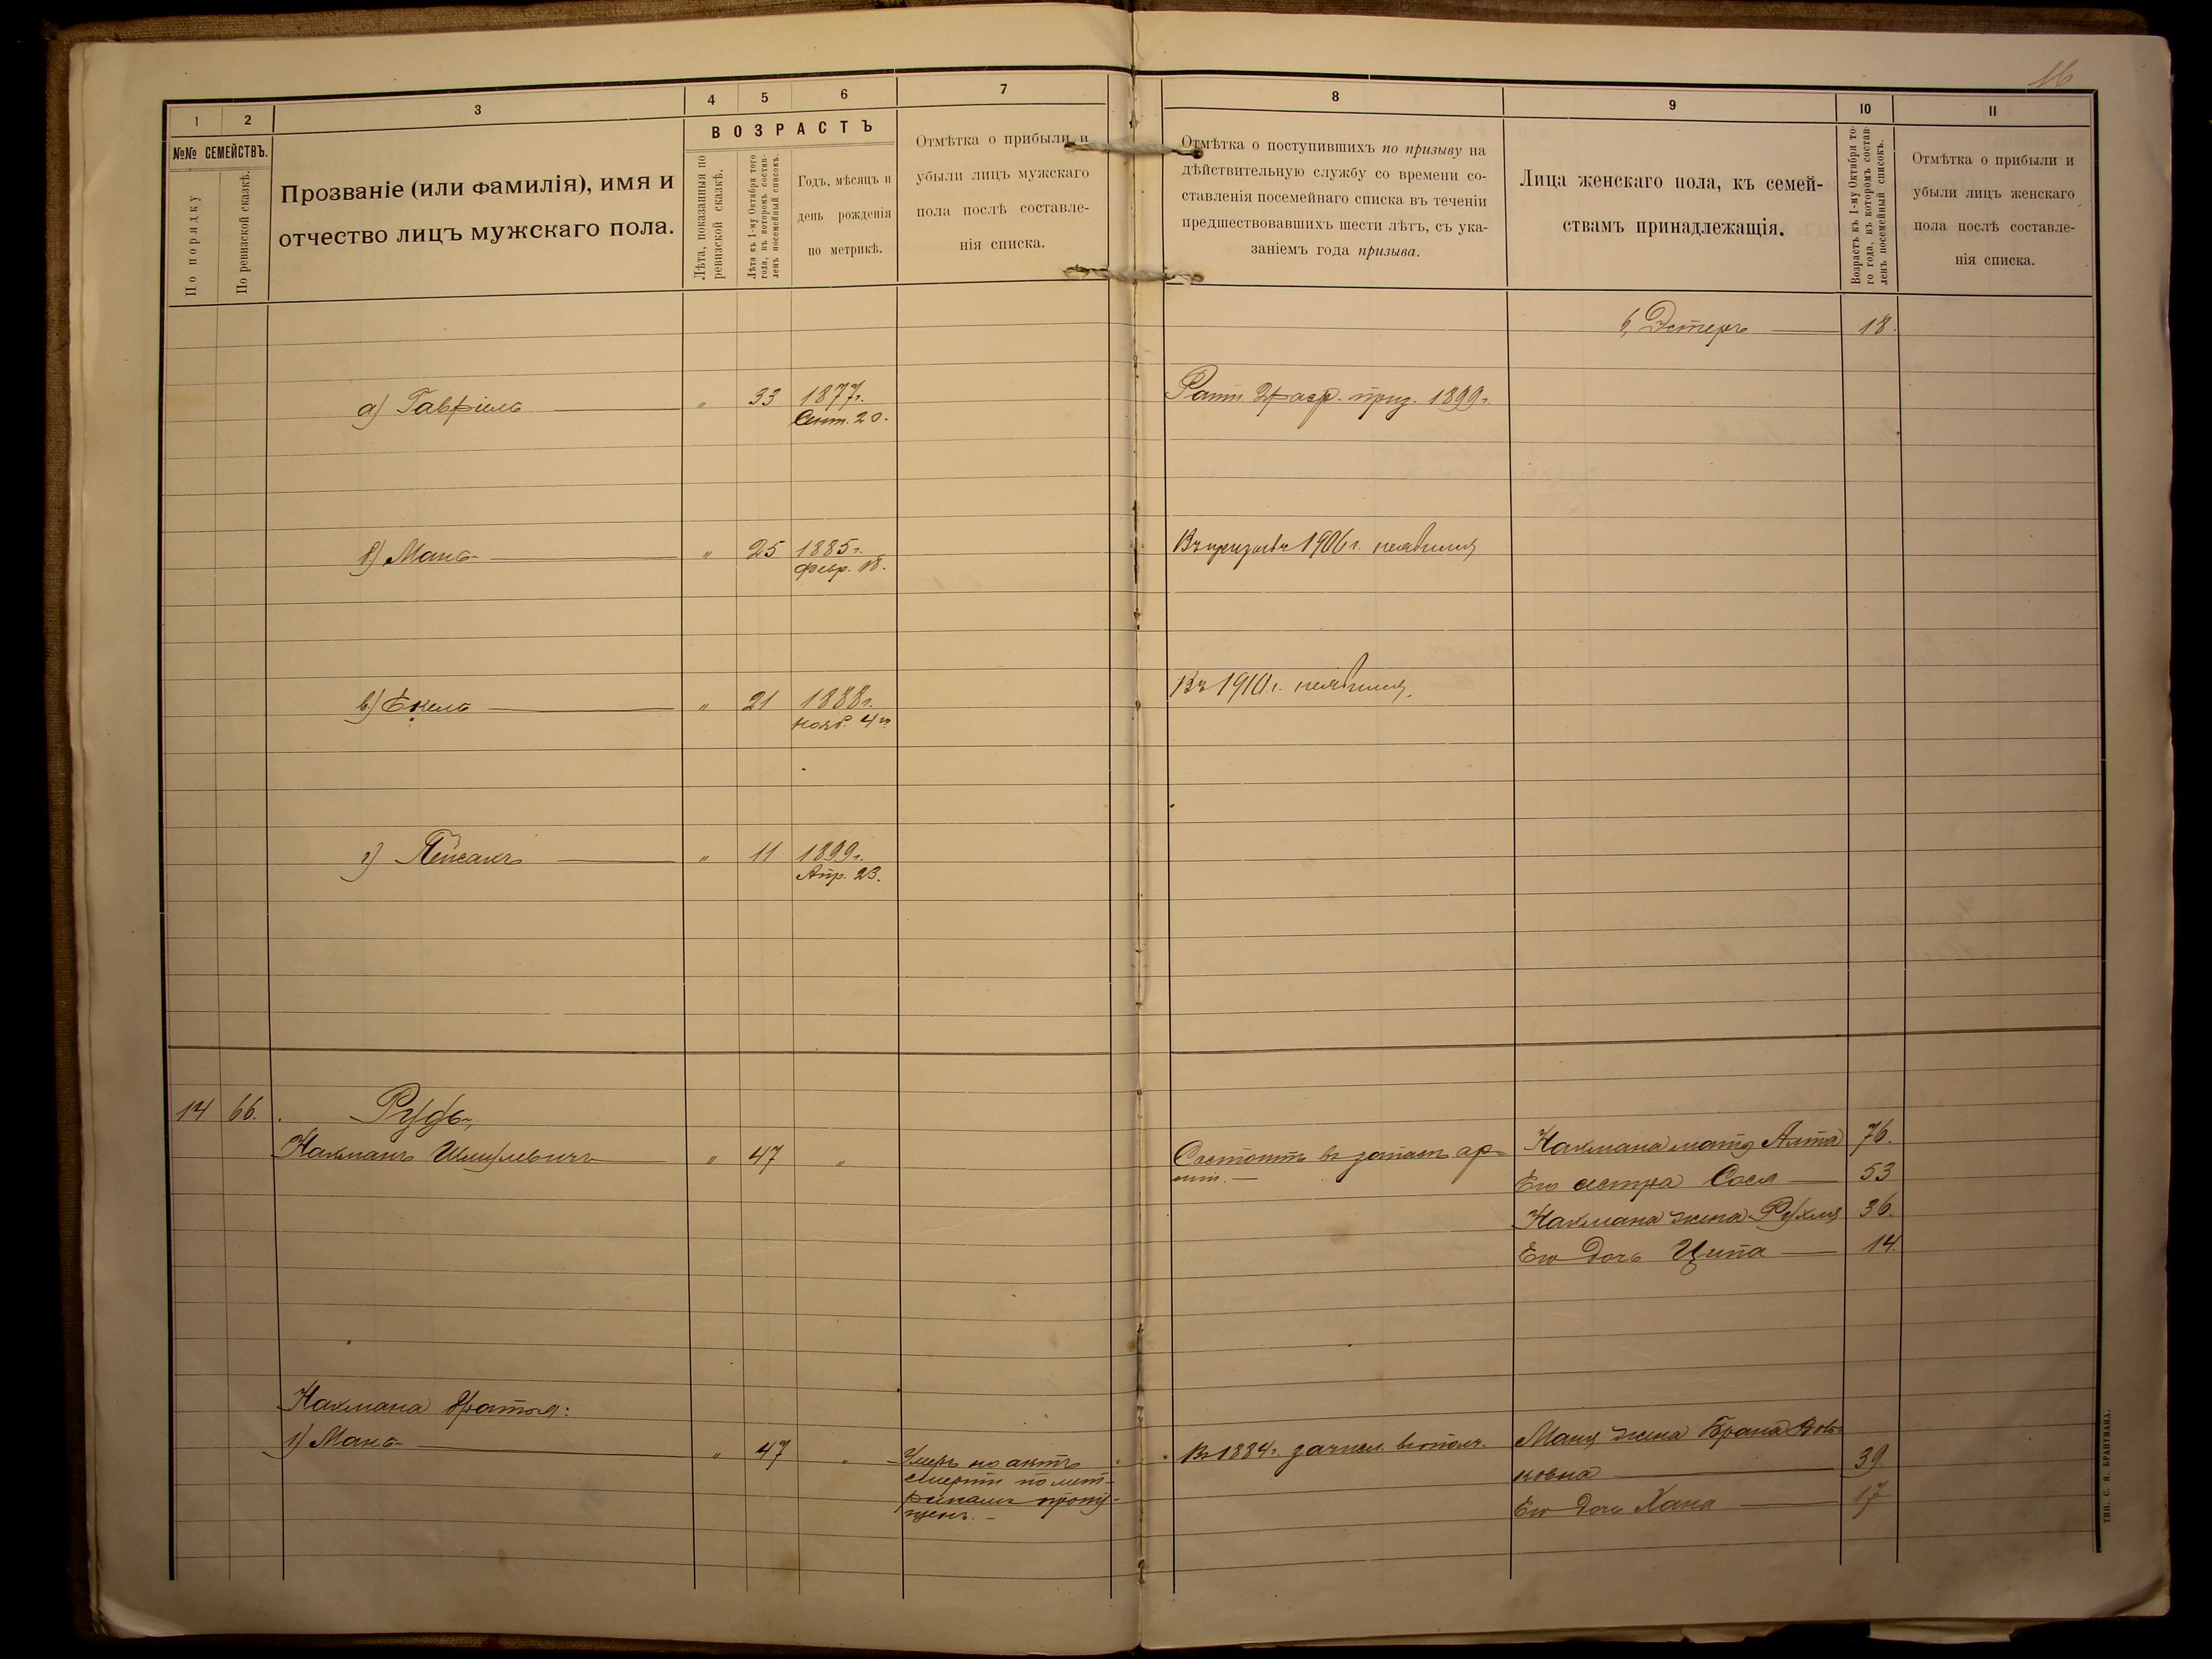 16
1
2
3
4
5
6
7
8
9
10
11
№№ СЕМЕЙСТВЪ.
По порядку
По ревизской сказкѣ.
Прозваніе (или фамилія), имя и
отчество лицъ мужскаго пола.
ВОЗРАСТЪ
Лѣта, показанныя по
ревизской сказкѣ.
Лѣта къ 1-му Октября того
года, въ которомъ состав-
ленъ посемейный списокъ.
Годъ, мѣсяцъ и
день рожденія
по метрикѣ.
Отмѣтка о прибыли и
убыли лицъ мужскаго
пола послѣ составле-
нія списка.
Отмѣтка о поступившихъ по призыву на
дѣйствительную службу со времени со-
ставленія посемейнаго списка въ теченіи
предшествовавшихъ шести лѣтъ, съ ука-
заніемъ года призыва.
Лица женскаго пола, къ семей-
ствамъ принадлежащія.
Возрастъ къ 1-му Октября то-
го года, въ которомъ состав-
ленъ посемейный списокъ.
Отмѣтка о прибыли и
убыли лицъ женскаго
пола послѣ составле-
нія списка.
Эстеръ — 18.
а) Гавріель — " 33 1877 г.
Сент. 20.
Ратн. 2 разр. приз. 1899 г.
б) Мань — " 25 1885 г.
Февр. 18.
Въ призывъ 1906 г. неявился
в) Екель — " 21 1888 г.
Нояб. 4 го
Въ 1910 г. неявился.
г) Пейсахъ — " 11 1899 г.
Апр. 23.
14 66. Рудь,
Нахманъ Шмулевичъ — " 47 "
Состоитъ въ запасъ ар-
міи. —
Нахмана мать Алта 76.
Его сестра Сося — 53
Нахмана жена Рухля 36.
Его дочь Ципа — 14.
Нахмана братья:
1) Мань — " 47 "
Умеръ но актъ
смерти по мет-
рикамъ пропу-
щенъ. —
Въ 1884 г. зачисл. въ ополч.
Маня жена Брана Воль-
ковна — 39
Его дочь Хана — 17
ТИП. С. Я. БРАНТМАНА.